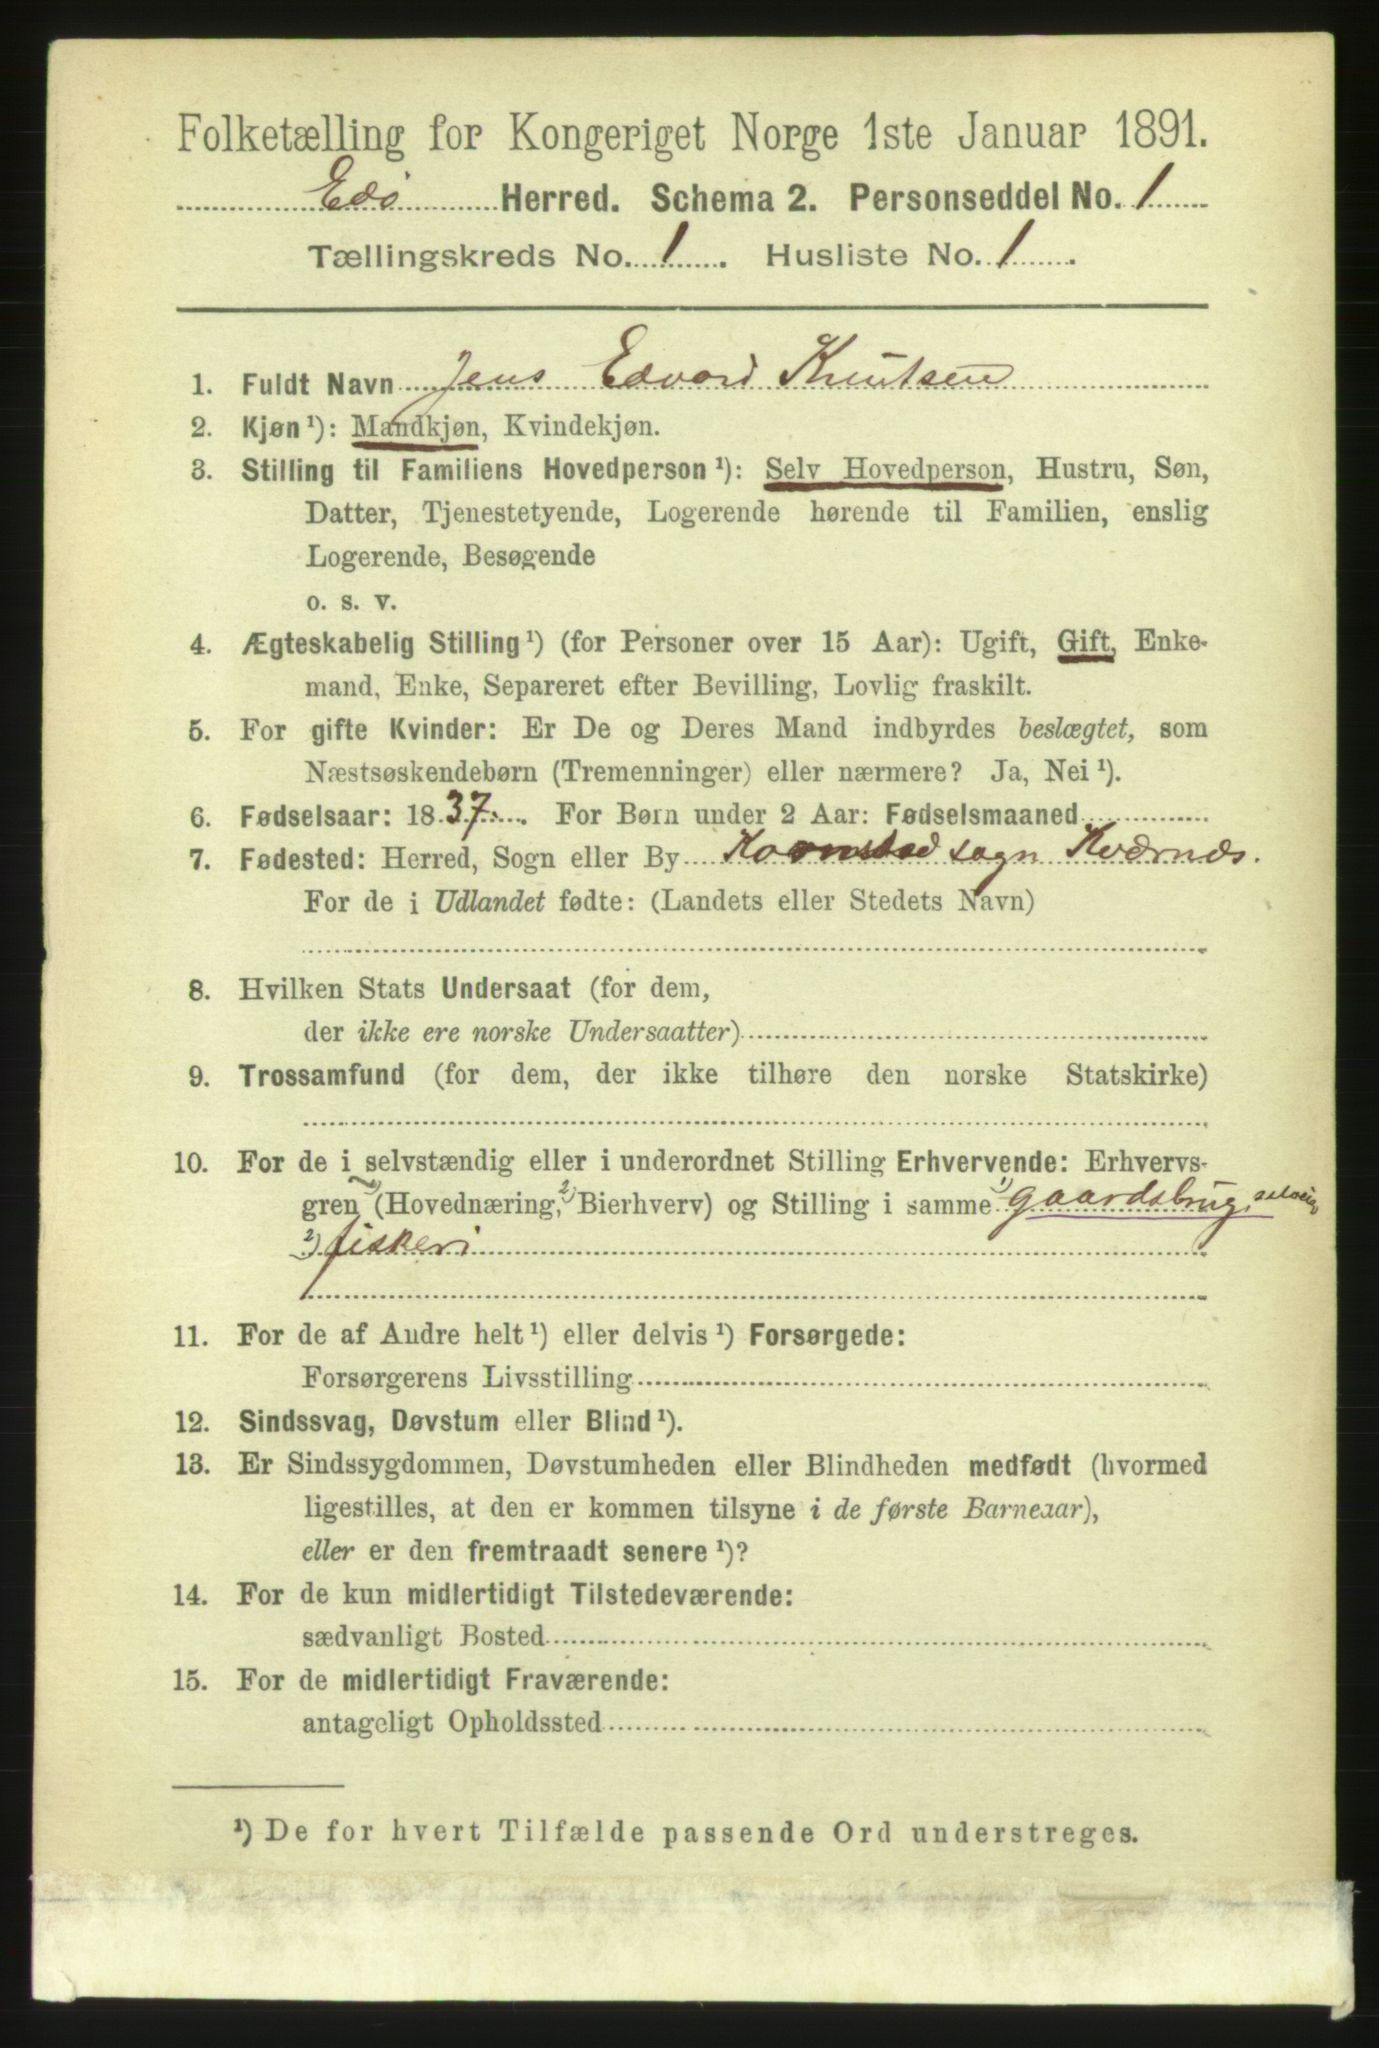 Folketælling for Kongeriget Norge 1ste Januar 1891.
Edö Herred. Schema 2. Personseddel No. 1
Tællingskreds No. 1. Husliste No. 1.
1. Fuldt Navn Jens Edvard Knutsen
2. Kjøn¹): Mandkjøn, Kvindekjøn.
3. Stilling til Familiens Hovedperson¹): Selv Hovedperson, Hustru, Søn,
Datter, Tjenestetyende, Logerende hørende til Familien, enslig
Logerende, Besøgende
o. s. v.
4. Ægteskabelig Stilling¹) (for Personer over 15 Aar): Ugift, Gift, Enke-
mand, Enke, Separeret efter Bevilling, Lovlig fraskilt.
5. For gifte Kvinder: Er De og Deres Mand indbyrdes beslægtet, som
Næstsøskendebørn (Tremenninger) eller nærmere? Ja, Nei¹).
6. Fødselsaar: 1837. For Børn under 2 Aar: Fødselsmaaned
7. Fødested: Herred, Sogn eller By Kornstad sogn Kværnæs.
For de i Udlandet fødte: (Landets eller Stedets Navn)
8. Hvilken Stats Undersaat (for dem,
der ikke ere norske Undersaatter)
9. Trossamfund (for dem, der ikke tilhøre den norske Statskirke)
10. For de i selvstændig eller i underordnet Stilling Erhvervende: Erhvervs-
gren (Hovednæring, 2) Bierhverv) og Stilling i samme 1) gaardsbrug, selveier
2) fiskeri
11. For de af Andre helt¹) eller delvis¹) Forsørgede:
Forsørgerens Livsstilling
12. Sindssvag, Døvstum eller Blind¹).
13. Er Sindssygdommen, Døvstumheden eller Blindheden medfødt (hvormed
ligestilles, at den er kommen tilsyne i de første Barneaar),
eller er den fremtraadt senere¹)?
14. For de kun midlertidigt Tilstedeværende:
sædvanligt Bosted
15. For de midlertidigt Fraværende:
antageligt Opholdssted
¹) De for hvert Tilfælde passende Ord understreges.